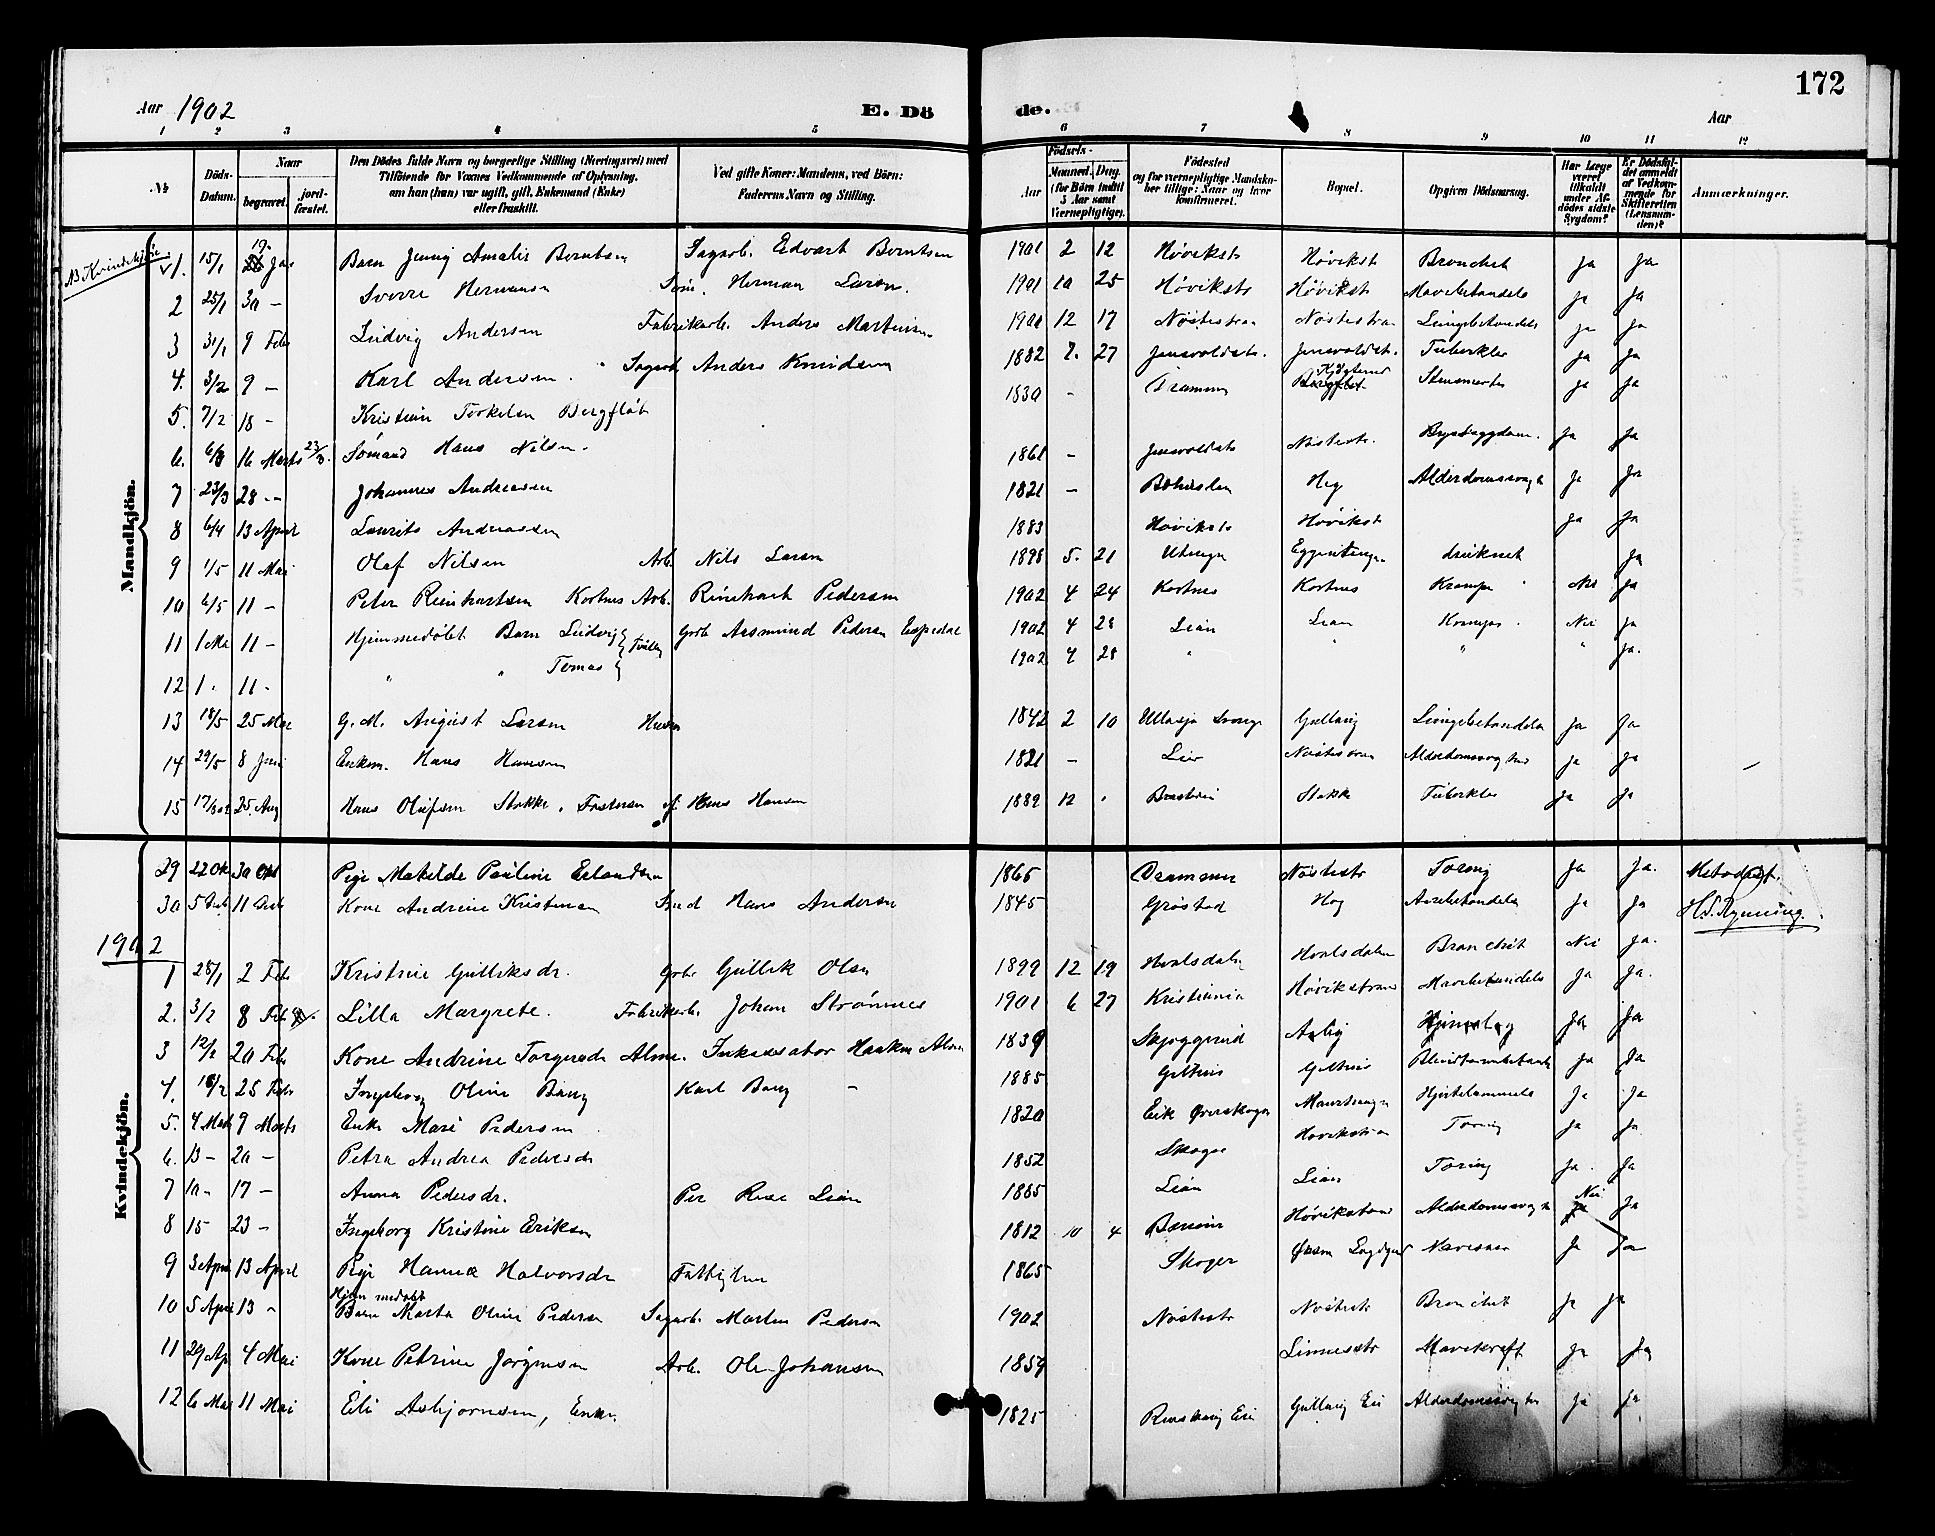 172
Aar 1902 E. Dö de. Aar
1 2 3 4 5 6 7 8 9 10 11 12
№ Döds-Datum. Naar begravet. jord-fæstet. Den Dödes fulde Navn og borgerlige Stilling (Næringsvei) med Tilföiende for Voxnes Vedkommende af Oplysning, om han (hun) var ugift, gift, Enkemand (Enke) eller fraskilt. Ved gifte Koner: Mandens, ved Börn: Faderens Navn og Stilling. Födsels- Aar Maaned. Dag. (for Börn indtil 5 Aar samt Værnepligtige). Födested og for værnepligtige Mandska-ber tillige: Naar og hvor konfirmeret. Bopæl. Opgiven Dödsaarsag. Har Læge været tilkaldt under Af-dödes sidste Sygdom? Er Dödsfal-det anmeldt af Vedkom-mende for Skifteretten (Lensman-den)? Anmærkninger.
Mandkjön.
NB Kvindekjön
1. 15/1 19 Jan Barn Jenny Amalie Berntsen Sagarb. Edvart Berntsen 1901 2 12 Høvikstr Høvikst Bronchit Ja Ja
2 25/1 30 - Sverre Hermansen Herman Larsen. 1901 10 25 Høvikstr Høvikst Mavebetændels Ja Ja
3 31/1 9 Feb Ludvig Andersen Fabrikarb. Anders Martinsen 1901 12 17 Nøstestran Nøstestran Lungebetændels Ja Ja
4. 3/2 9 - Karl Andersen. Sagarb. Anders Knudsen 1882 7. 27 Jensvoldstr. Jensvoldst. Tuberkler Ja Ja
5. 7/2 18 - Kristian Torkelsen Bergfløt 1830 - Drammen Ja Ja
6. 16 Marts 23/3. Sømand Hans Nilsen. 1861 - Jensvoldstr Nøstestr. Brystsygdom. Ja Ja
7 23/3 28 - Johannes Andreassen 1821 - Bohuslen Heg Alderdomssvagh Ja Ja
8 6/4 13 April Laurits Andreassen 1883 Høvikstr Høvikst Ja Ja
9 1/5 11 Mai Olaf Nilsen Arb. Nils Larsen 1898 5. 21 druknet Ja
10 6/5 11 - Peter Reinhartsen Kortnes Arb. Rinehart Pedersen 1902 4 24 Kortnes Kortnes Krampe Nei Ja
11 1 Mai 11 - Hjemmedøbt Barn Ludvig } Tvilling Grbr Aasmund Pedersen Espedal 1902 4 28 Lian Lian Krampe. Nei Ja
12 1 - 11 - " " Tomas } 1902 4 28 " " " " Ja.
13 18/5 25 Mai G. M. August Larsen 1842 2 10 Gullaug Lungebetændelse Ja Ja
14 29/5 8 Juni Enkem. Hans Hansen 1821 - Lier Nøstestran Alderdomssvaghed Ja Ja
15 25. Aug Hans Olufsen Stokke, Fostersøn af Hans Hansen 1889 12 Stokke Tuberkler Ja Ja
Kvindekjön.
29 22 Okt 30 Okt Pige Matilde Pauline Erlandsen 1865 Drammen Nøstestr Tæring Ja Ja. Metodist.
30 5 Dcb 11 Dcb Kone Andrine Kristensen Hans Andersen 1845 Grøstad Høg Ja Ja H. S. Rynning.
1902
1 28/1 2 Feb Kristine Gulliksdr. Grbr Gullik Olsen 1899 12 19 Hvalsdalen Hvalsdalen Bronchit Nei Ja.
2. 3/2 8 Feb Lilla Margrete. Fabrikarb. Johan Strømnes 1901 6 27 Kristiania Høvikstran Mavebetændels Ja Ja.
3 12/2 20 Feb Kone Andrine Torgersdr Alme. Inkassator Haaken Alme 1839 Skjeggerud Asby Ja Ja
4. 18/2 25 Feb Ingeborg Oline Bang Karl Bang - 1885 Gilhus Gilhus Blindtarmbetænd Ja Ja
5. 4 Mart 9 Marts Enke Mari Pedersen 1820 Eik Øvreskogen Hjertelammels Ja Ja
6. 13 - 20 - Petra Andrea Pedersdr 1852 Skoger Høvikstran Tæring Ja Ja
7 10 - 17 - Anna Pedersdr. Per Lian 1885 Lian Lian Tæring Ja. Ja
8 15 23 - Ingeborg Kristine Eriksen 1812 10 4 Høvikstran Alderdomssvagh Nei Ja
9 3 April 13 April Pige Hanna Halvorsdr Fattiglem 1865 Skoger Ja Ja
10 5 April 13 - Hjemmedøbt Barn Marta Oline Pedersen Sagarb. Martin Pedersen 1902 Nøstestr Nøstestr Bronchit Ja Ja
11 29 Ap 4 Mai Kone Petrine Jørgensen Arb. Ole Johansen 1859 Linnesstr Mavekræft Ja Ja
12 6 Mai 11 Mai Eli Asbjørnsen, Enke 1825 Gullaug Eie Alderdomssvaghed Ja Ja